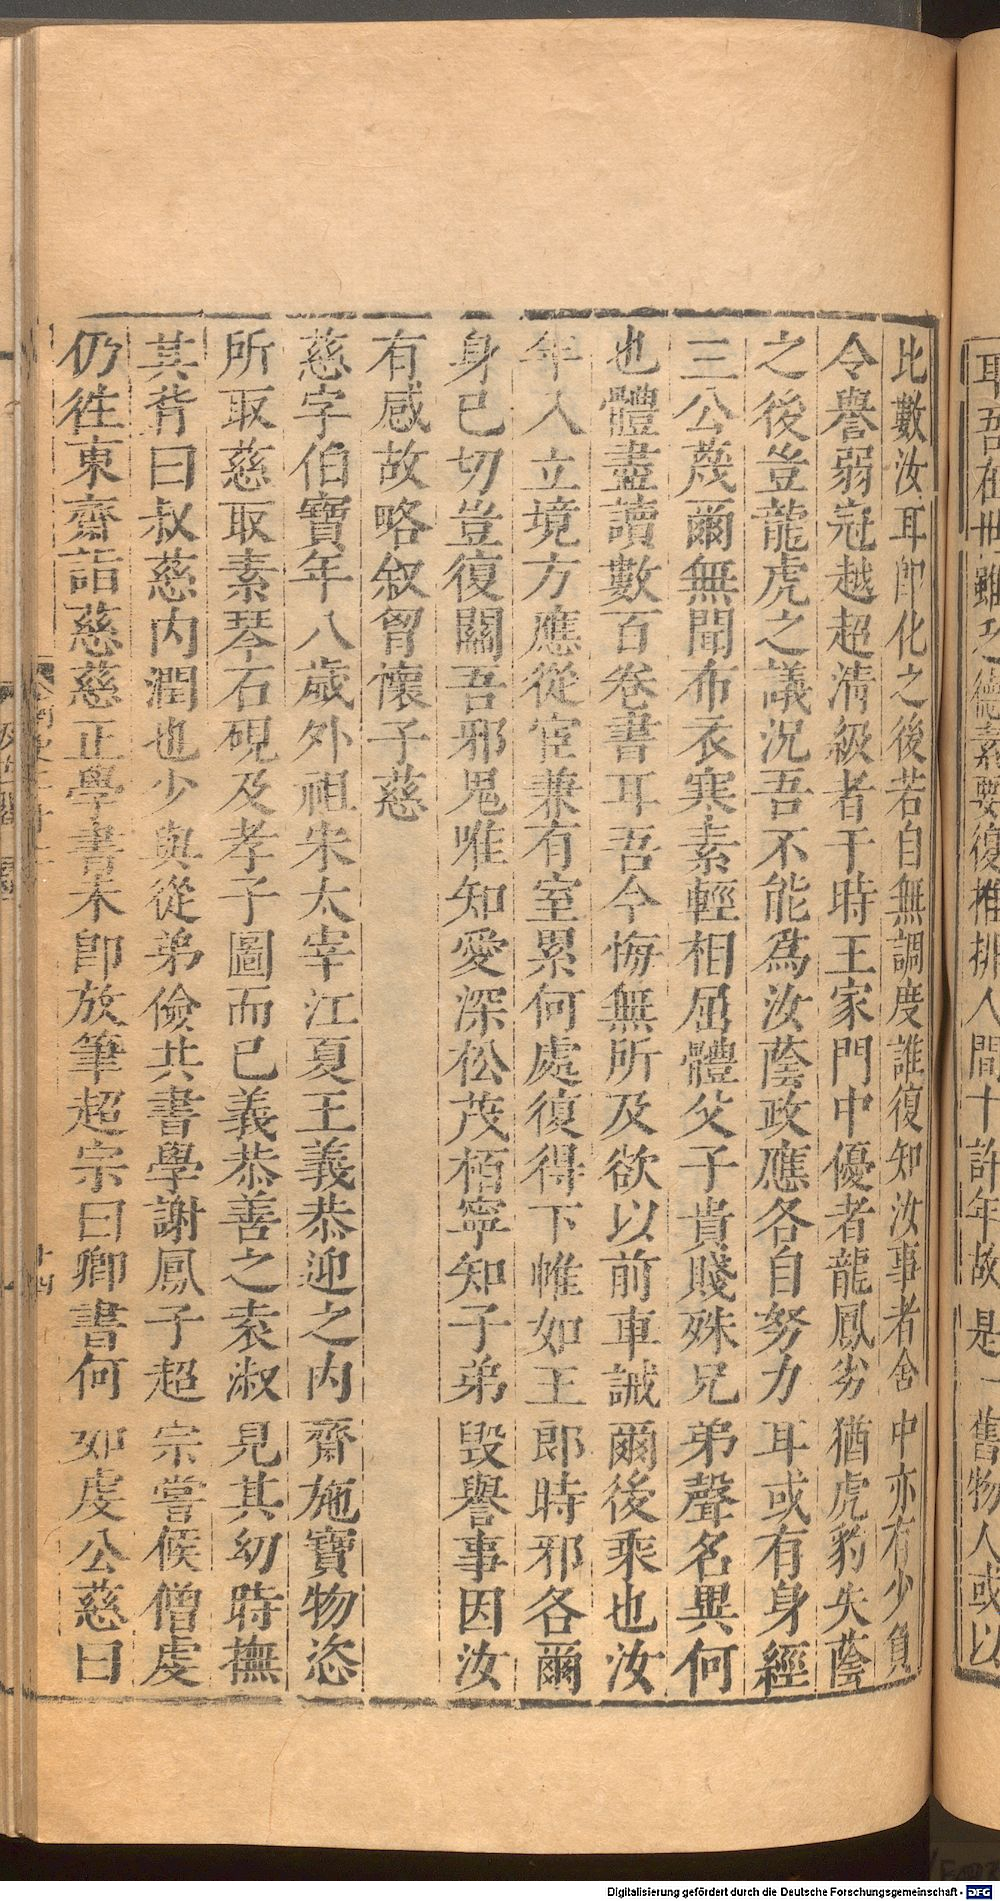 耶吾在世雖乏德素要復推排人間十許年故是一舊物人或以
比數汝耳卽化之後若自無調度誰復知汝事者舍中亦有少負
令譽弱冠越超清級者于時王家門中優者龍鳳劣猶虎豹失蔭
之後豈龍虎之議況吾不能爲汝蔭政應各自努力耳或有身經
三公蔑爾無聞布衣寒素輕相屈體父子貴賤殊兄弟聲名異何
也體盡讀數百卷書耳吾今悔無所及欲以前車誡爾後乘也汝
年入立境方應從宦兼有室累何處復得下帷如王郎時邪各爾
身已切豈復關吾邪鬼唯知愛深松茂栢寧知子弟毀譽事因汝
有感故略叙胷懷子慈
慈字伯寶年八歲外祖宋太宰江夏王義恭迎之內齋施寶物恣
所取慈取素琴石硯及孝子圖而已義恭善之袁淑見其幼時撫
其背曰叔慈內潤也少與從弟儉共書學謝鳳子超宗嘗候僧虔
仍往東齋詣慈慈正學書未卽放筆超宗曰卿書何如虔公慈曰
廿四
Digitalisierung gefördert durch die Deutsche Forschungsgemeinschaft - DFG